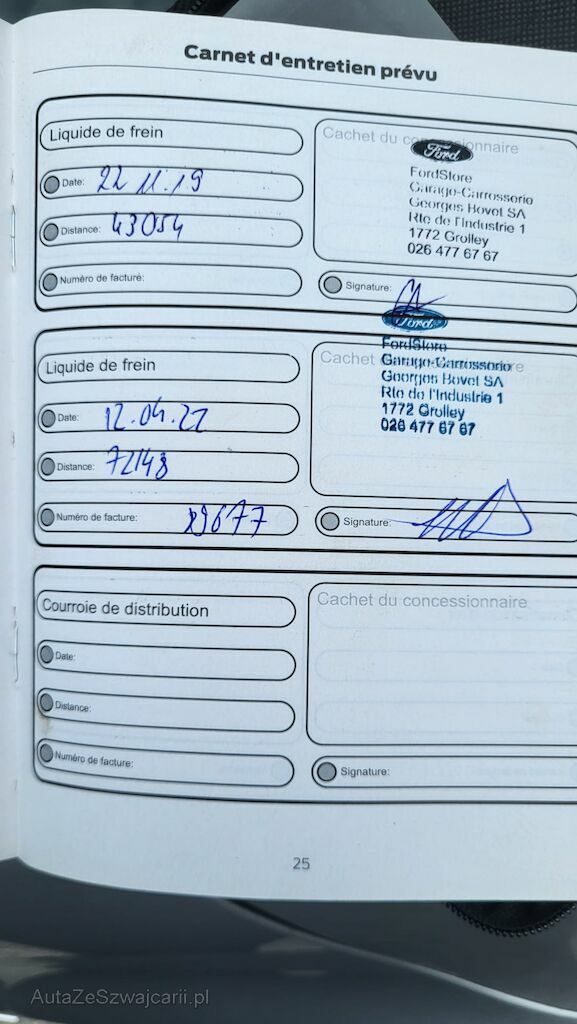 Carnet d'entretien prévu
Liquide de frein
Date: 22 11.19
Distance: 43054
Numéro de facture:
Cachet du concessionnaire
Ford
FordStore
Garage-Carrosserie
Georges Bovet SA
Rte de l'Industrie 1
1772 Grolley
026 477 67 67
Signature:
Liquide de frein
Date: 12.04.22
Distance: 72148
Numéro de facture: 29677
Cachet
Ford
FordStore
Garage-Carrosserie
Georges Bovet SA
Rte de l'Industrie 1
1772 Grolley
026 477 67 67
Signature:
Courroie de distribution
Date:
Distance:
Numéro de facture:
Cachet du concessionnaire
Signature:
25
AutaZeSzwajcarii.pl